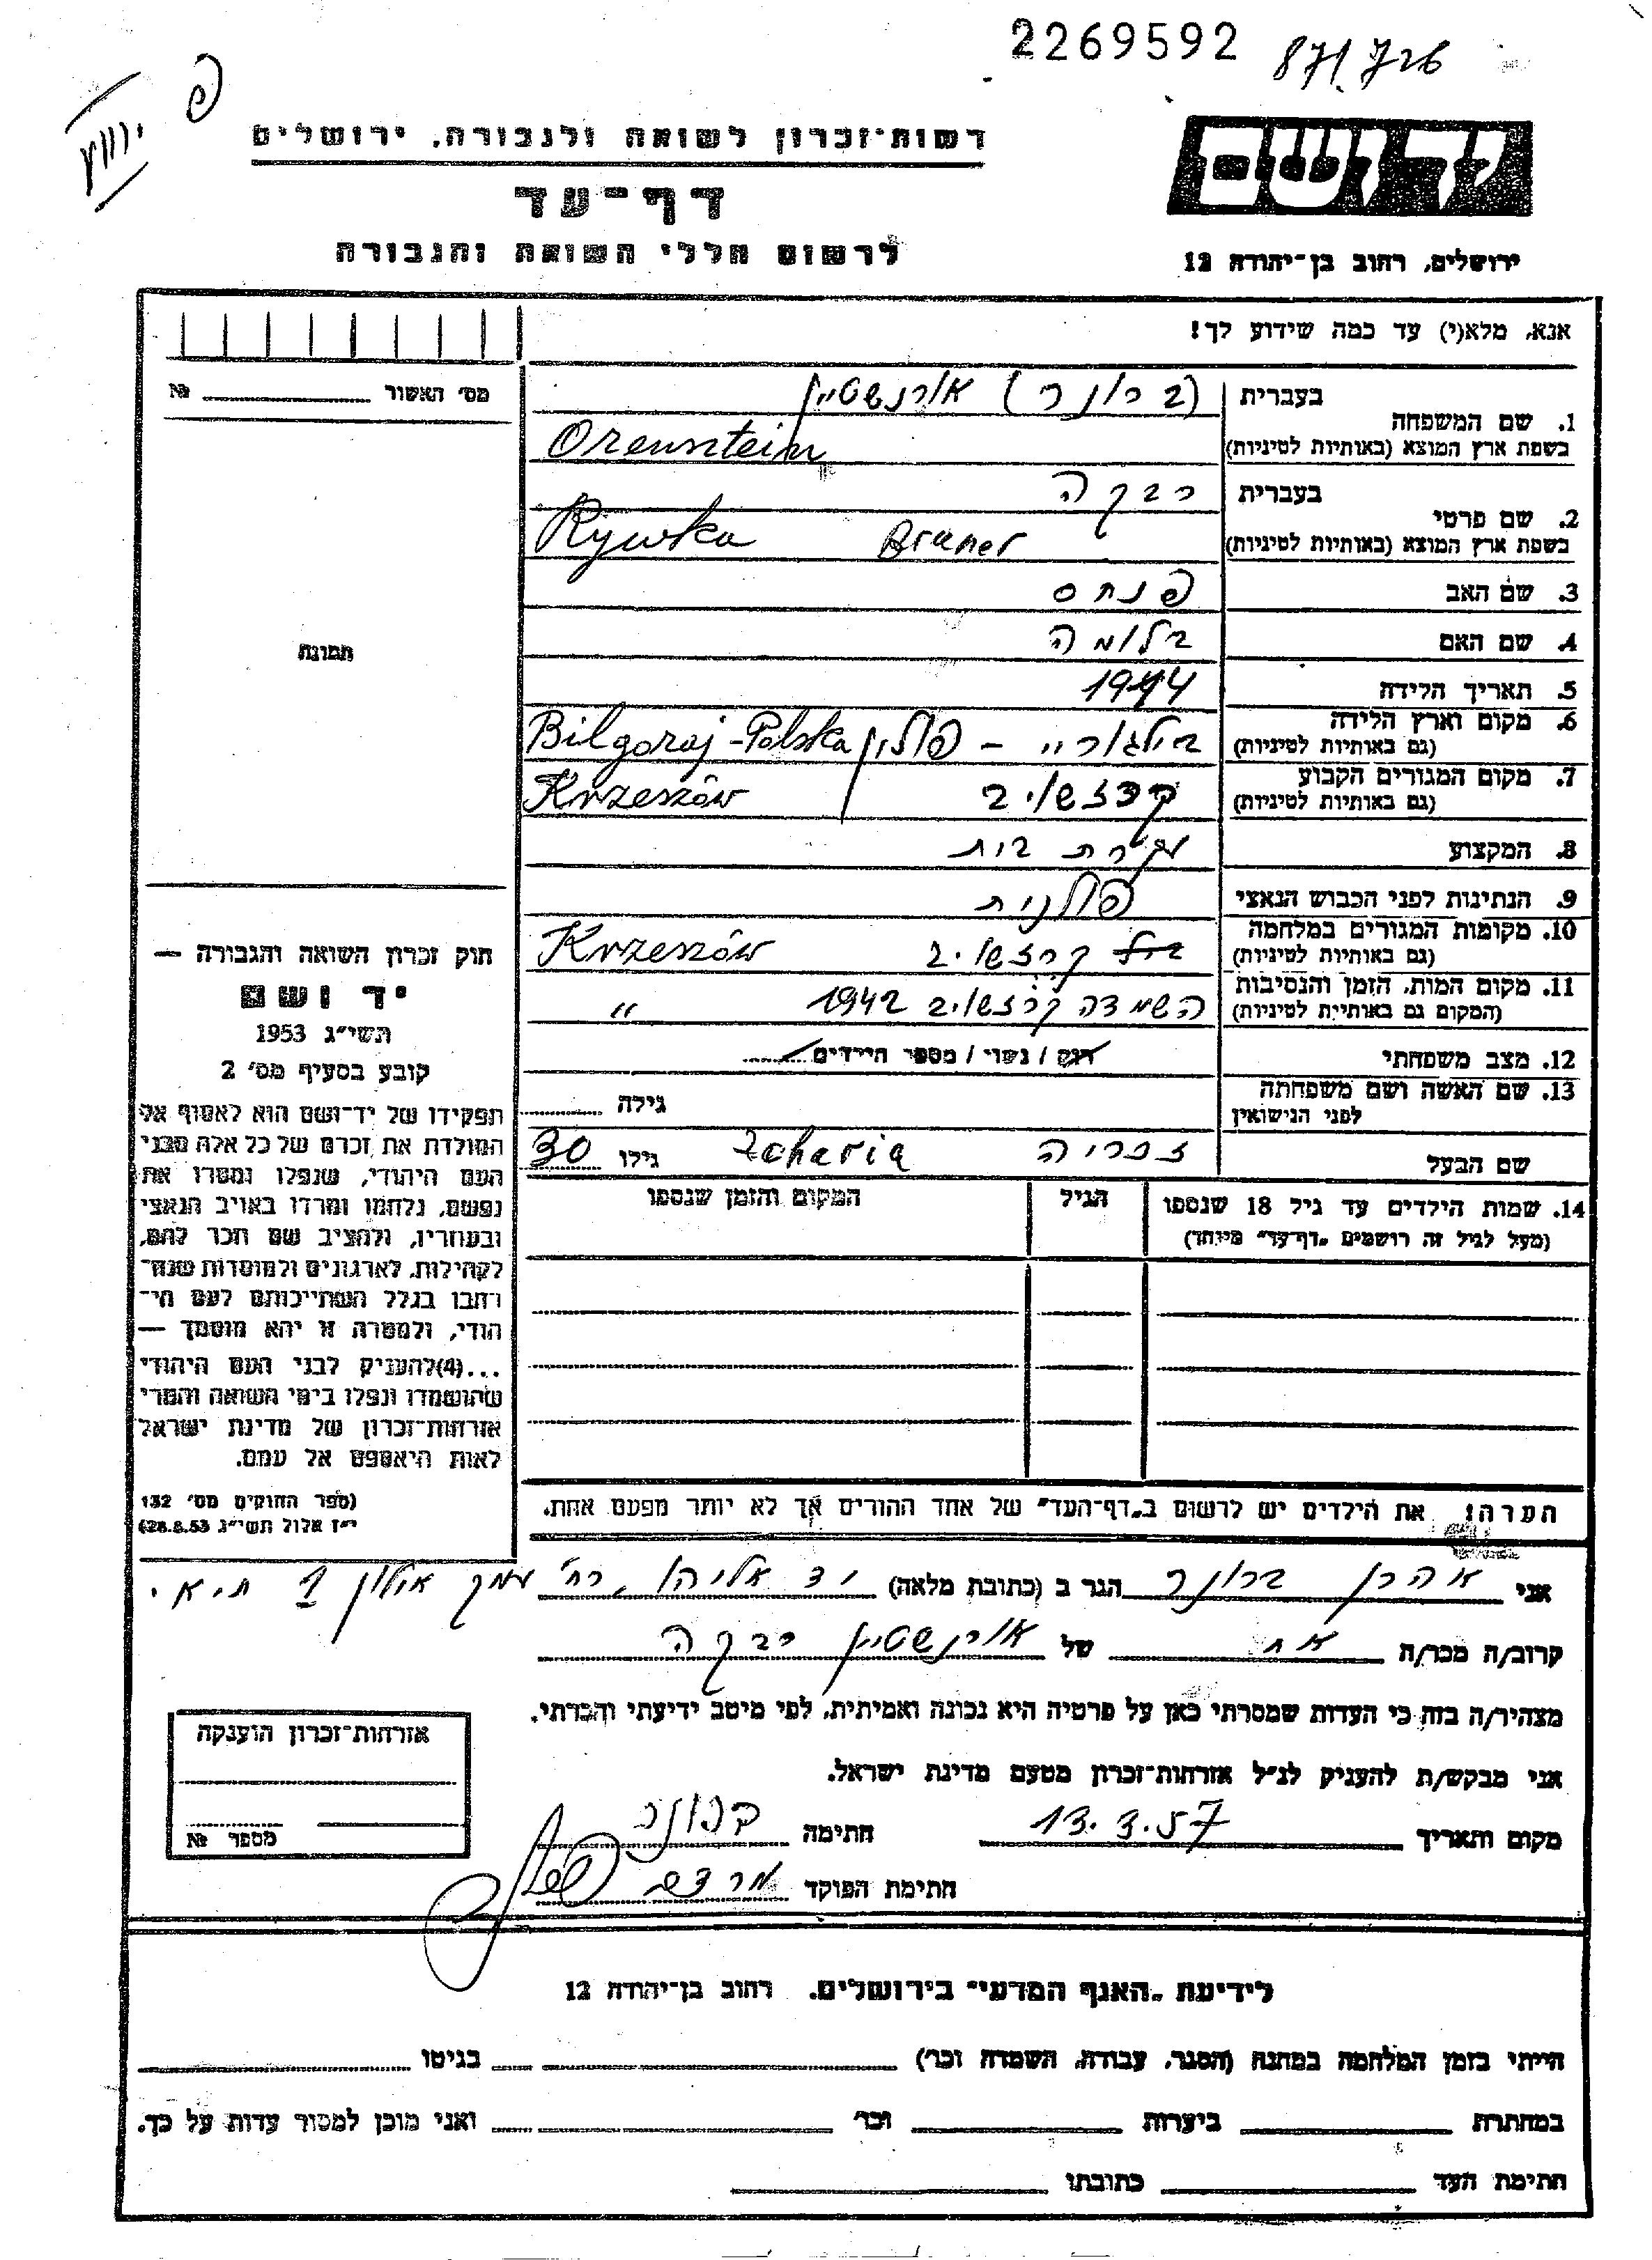 2269592
871/726
פ
רשות־זכרון לשואה ולגבורה, ירושלים
דף־עד
לרשום חללי השואה והגבורה
יד ושם
ירושלים, רחוב בן־יהודה 12
אנא, מלא(י) עד כמה שידוע לך!
מס׳ האשור №
1. שם המשפחה
בעברית (ברונר) אורנשטיין
בשפת ארץ המוצא (באותיות לטיניות) Orensztein
2. שם פרטי
בעברית רבקה
בשפת ארץ המוצא (באותיות לטיניות) Rywka Bruner
3. שם האב פנחס
4. שם האם בלומה
5. תאריך הלידה
6. מקום וארץ הלידה
(גם באותיות לטיניות) בילגוריי - פולין Bilgoraj-Polska
7. מקום המגורים הקבוע
(גם באותיות לטיניות) קרזשוב Krzeszów
8. המקצוע עקרת בית
9. הנתינות לפני הכבוש הנאצי פולנית
10. מקומות המגורים במלחמה
(גם באותיות לטיניות) קרזשוב Krzeszów
11. מקום המות, הזמן והנסיבות
(המקום גם באותיות לטיניות) השמדה קרזשוב 1942 "
12. מצב משפחתי רווק / נשוי / מספר הילדים
13. שם האשה ושם משפחתה
לפני הנישואין גילה
שם הבעל זכריה Zcharia גילו 30
14. שמות הילדים עד גיל 18 שנספו הגיל המקום והזמן שנספו
(מעל לגיל זה רושמים „דף־עד" מיוחד)
הערה! את הילדים יש לרשום ב„דף־העד" של אחד ההורים אך לא יותר מפעם אחת.
תמונה
חוק זכרון השואה והגבורה —
יד ושם
תשי״ג 1953
קובע בסעיף מס׳ 2
תפקידו של יד־ושם הוא לאסוף אל
המולדת את זכרם של כל אלה מבני
העם היהודי, שנפלו ומסרו את
נפשם, נלחמו ומרדו באויב הנאצי
ובעוזריו, ולהציב שם וזכר להם,
לקהילות, לארגונים ולמוסדות שנח־
רבו בגלל השתייכותם לעם הי־
הודי, ולמטרה זו יהא מוסמך —
...(4) להעניק לבני העם היהודי
שהושמדו ונפלו בימי השואה והמרי
אזרחות־זכרון של מדינת ישראל
לאות היאספם אל עמם.
(ספר החוקים מס׳ 132
י״ז אלול תשי״ג 28.8.53)
אני אהרן ברונר הגר ב (כתובת מלאה) יד אליהו, רח׳ עמק אילון 1 ת.א.
קרוב/ה מכר/ה אח של אורנשטיין רבקה
מצהיר/ה בזה כי העדות שמסרתי כאן על פרטיה היא נכונה ואמיתית, לפי מיטב ידיעתי והכרתי.
אני מבקש/ת להעניק לנ״ל אזרחות־זכרון מטעם מדינת ישראל.
מקום ותאריך 13.3.57 חתימה ברונר
חתימת הפוקד
אזרחות־זכרון הוענקה
מספר №
לידיעת „האגף המדעי" בירושלים, רחוב בן־יהודה 12
הייתי בזמן המלחמה במחנה (הסגר, עבודה, השמדה וכו׳) בגיטו
במחתרת ביערות וכו׳ ואני מוכן למסור עדות על כך.
חתימת העד כתובתו